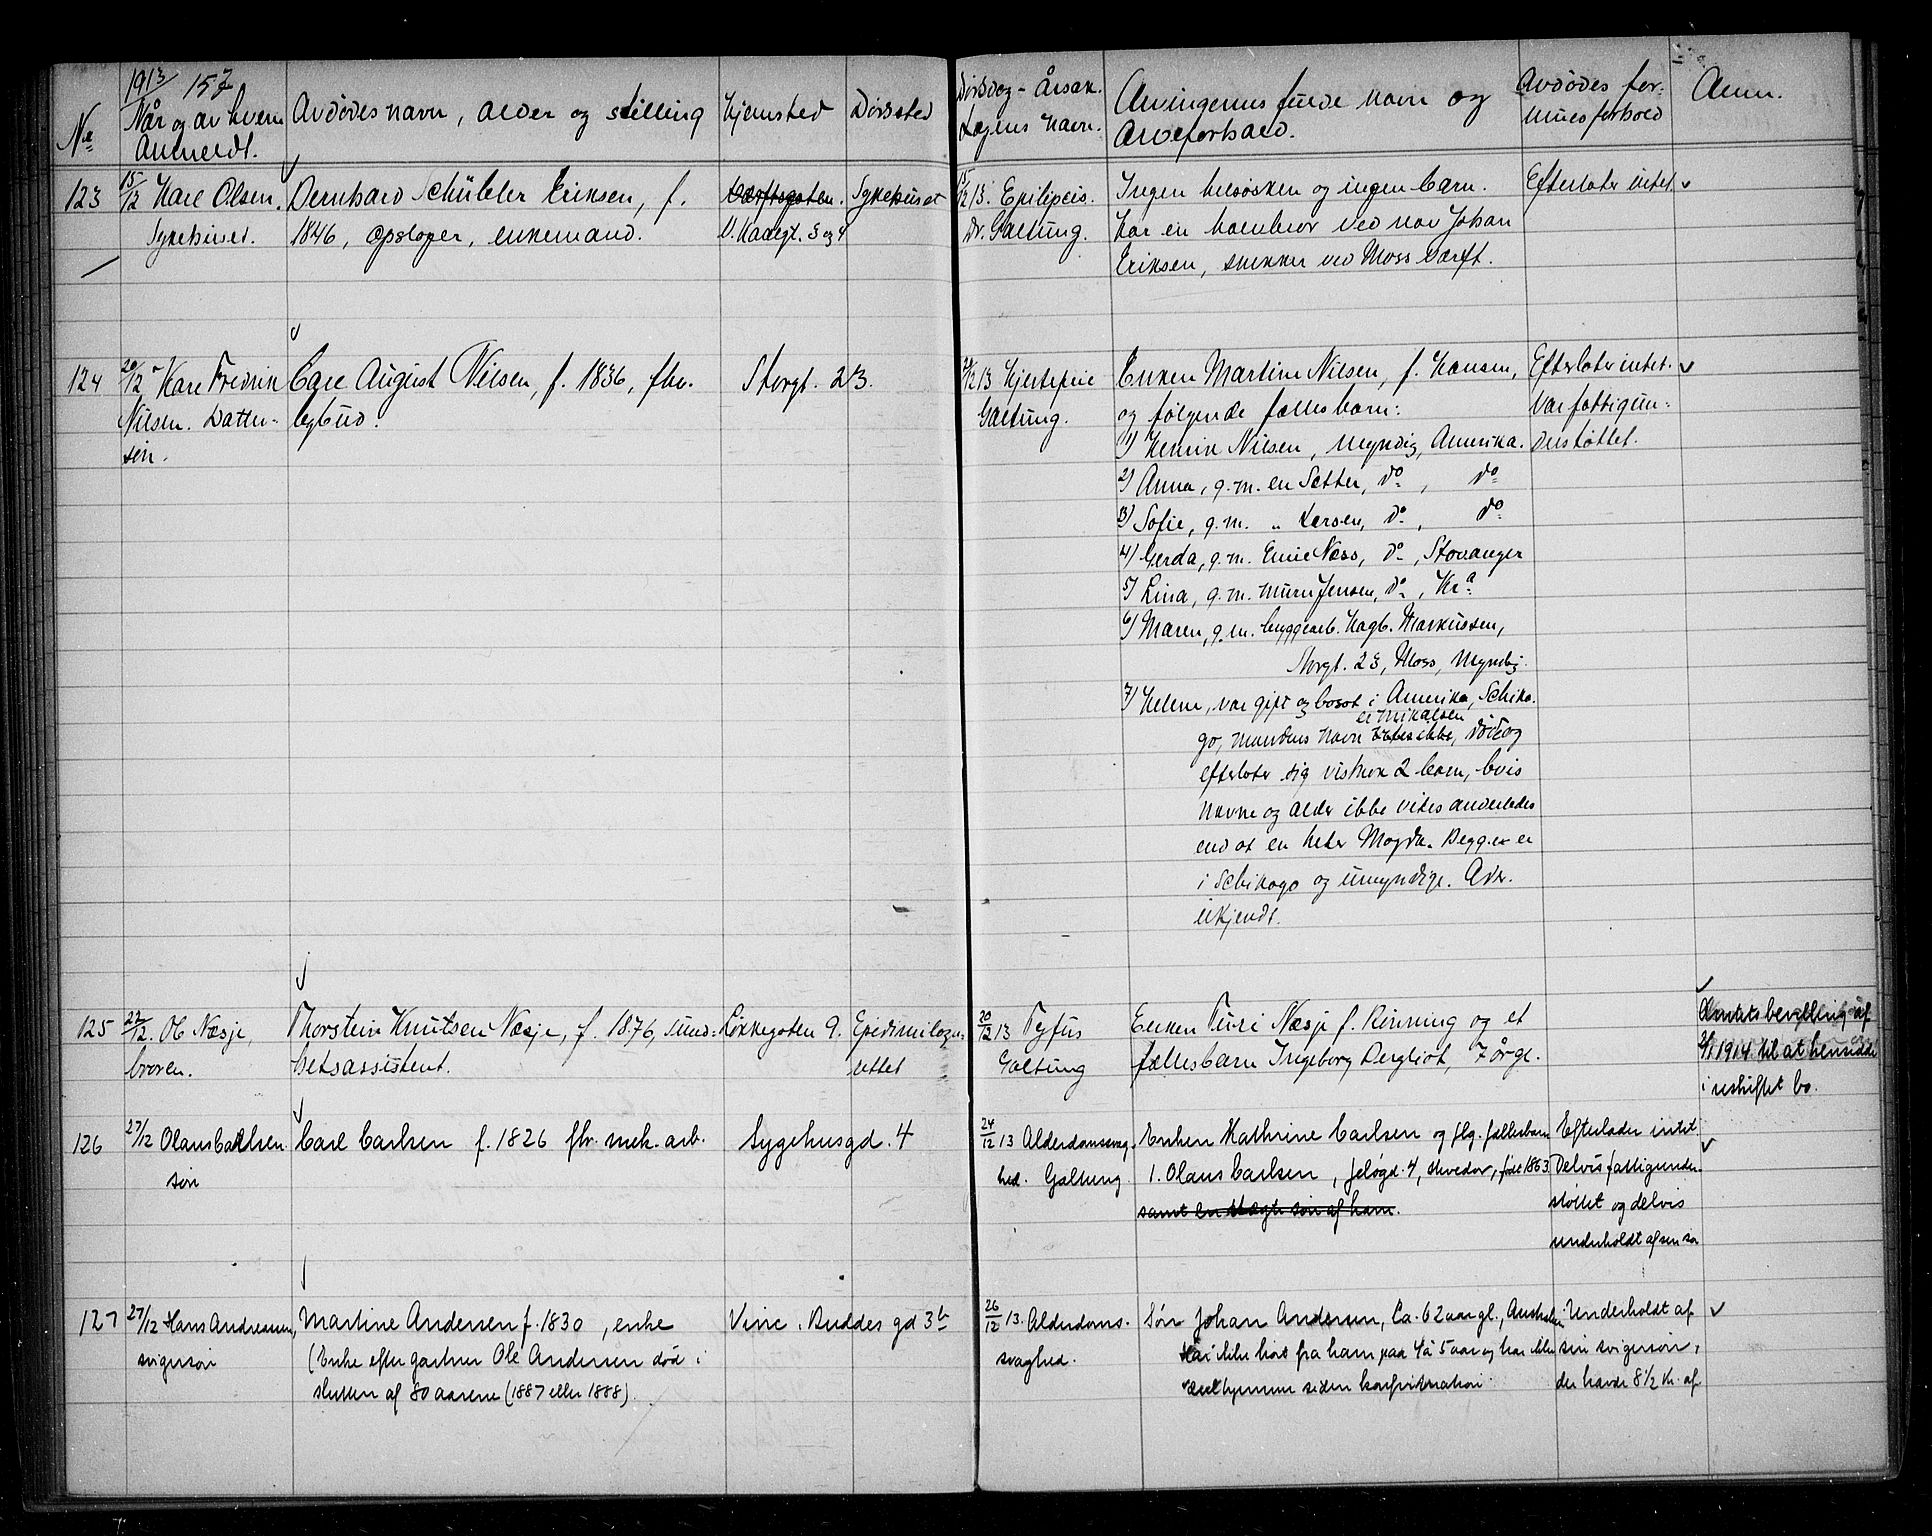 1913 157
No
Når og av hvem
Anmeldt.
Avdödes navn, alder og stilling
Hjemsted
Dödssted
Dödsdag - årsak.
Lægens navn.
Arvingernes fulde navn og
Arveforhold.
Avdödes for-
muesforhold
Anm.
123
15/12 Karl Olsen.
Sykehuset.
Bernhard Schübeler Eriksen, f.
1846, opsloper, enkemand.
Værftsgaten.
V. Kaaegt. 3 og 4
Sykehuset
15/12 13. Epilepsis.
Dr. Galtung.
Ingen helsösken og ingen barn.
Har en halvbror ved nav Johan
Eriksen, snekker ved Moss værft.
Efterlater intet
124
20/12 Karl Fredrik
Nilsen. Datter-
sön.
Carl August Nilsen, f. 1836, fhv.
bybud.
Storgt. 23.
20/12 13 Hjertefeil
Galtung.
Enken Martine Nilsen, f. Hansen,
og følgende fællesbarn:
1) Henrik Nilsen, myndig, Amerika.
2) Anna, g.m. en Sætter, do , do
3) Sofie, g.m. " Larsen, do , do
4) Gerda, g.m. Emil Næss, do , Stavanger
5) Lina, g.m. murer Jensen, do , Kra
6) Maren, g.m. byggearb. Hagb. Markussen,
Storgt. 23, Moss, myndig.
7) Helene, var gift og bosat i Amerika, Schika-
er Mikalsen
go, mandens navn vites ikke, död og
efterlater sig visknok 2 barn, hvis
navne og alder ikke vites anderledes
end at en heter Magda. Begge er
i Schikago og umyndige. Adr.
ukjendt.
Efterlater intet.
Var fattigun-
derstöttet.
125
22/12. Ol Næsje,
broren.
Thorstein Knutsen Næsje, f. 1876, sund-
hetsassistent.
Løkkegaten 9.
Epidimilaza-
rettet
20/12 13 Tyfus
Galtung
Enken Turi Næsje f. Rönning og et
fællesbarn Ingeborg Bergliot, 7 år gl.
Amtets bevilling af
1914 til at hensidde
i uskiftet bo.
126
27/12 Olaus Carlsen
sön
Carl Carlsen f. 1826 fhv. mek. arb.
Sygehusgd. 4
24/12 13 Alderdomssvag-
hed. Galtung.
Enken Kathrine Carlsen og flg. fællesbarn
1. Olaus Carlsen, Jeløgd. 4, skrædder, født 1863
samt en uægte sön af ham.
Efterlader intet
Delvis fattigunder-
støttet og delvis
underholdt af sin sön
127
27/12 Hans Andresen,
svigersön
Martine Andersen f. 1830, enke
(Enke efter gartner Ole Andersen död i
slutten af 80 aarene (1887 eller 1888).
Vinc. Buddes gd 3b
26/12 13. Alderdoms-
svaghed.
Sön Johan Andersen, Ca. 62 aar gl., Australien
Har ikke hört fra ham paa 4 à 5 aar og har ikke
været hjemme siden konfirmation.
Underholdt af
sin svigersön,
der havde 8 1/2 Kr. af